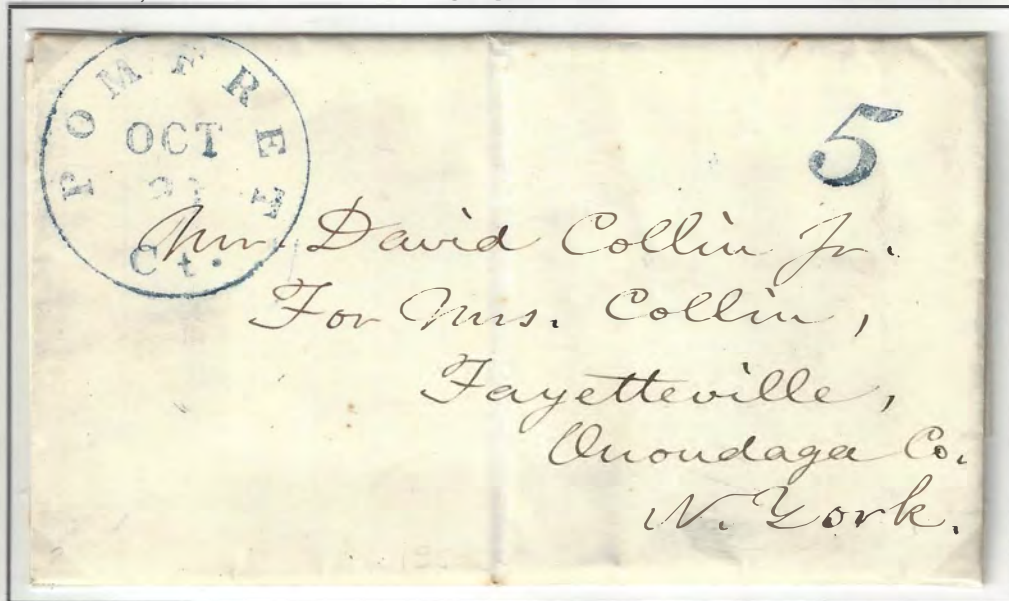 POMFRET
OCT
Ct.
5
Mr. David Collin Jr.
For Mrs. Collin,
Fayetteville,
Onondaga Co.
N. York.